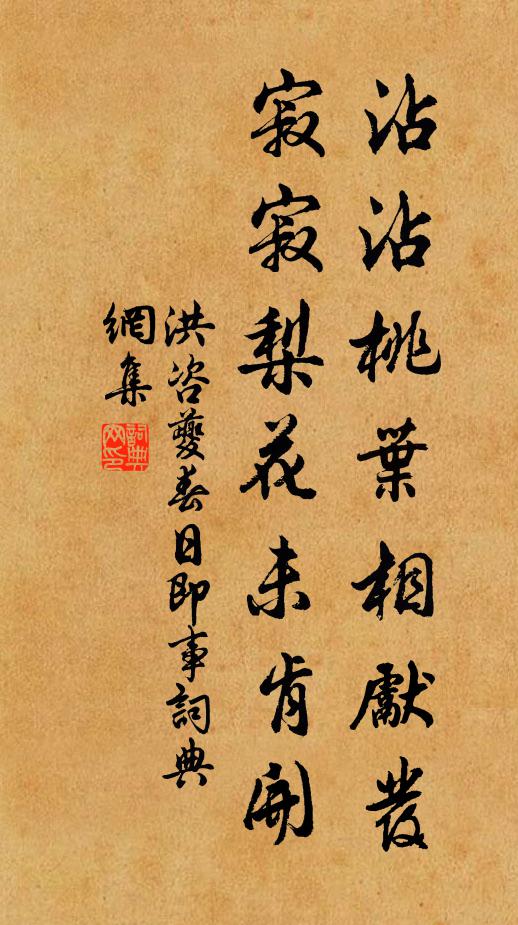 沾沾桃葉相獻發
寂寂梨花未肯開
洪咨夔春日即事詞典
網集
詞典
网印